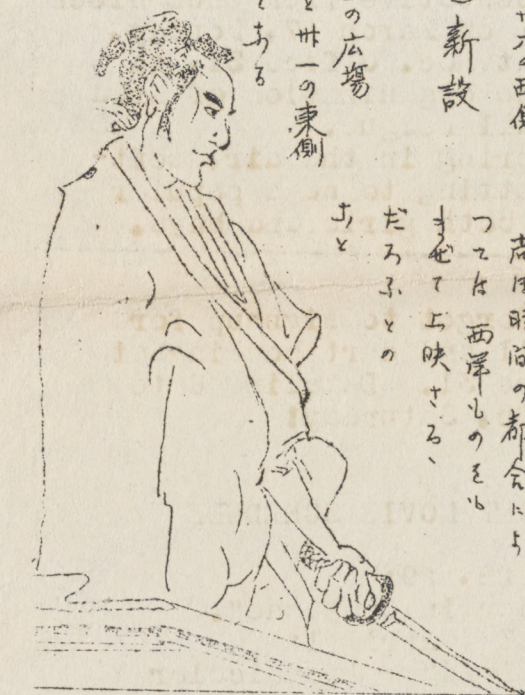 の西側
新設
の広場
と卅一の東側
とある
時間の都合によ
つては西洋ものをも
まぜて上映さる、
だろふとの
こと